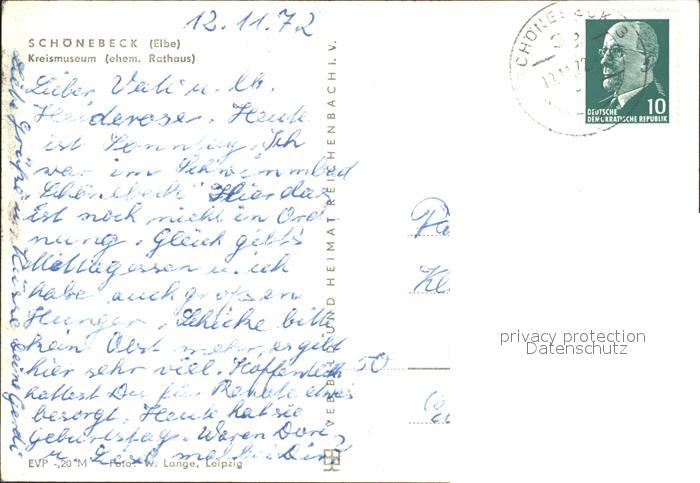 12.11.72
SCHÖNEBECK (Elbe)
Kreismuseum (ehem. Rathaus)
Lieber Vati u. lb.
Heiderose. Heute
ist Sonntag. Ich
war im Schwimmbad
Schönebeck. Hier das
ist noch nicht in Ord-
nung. Gleich gibt's
Mittagessen u. ich
habe auch großen
Hunger. Schicke bitte
kein Obst mehr, es gibt
hier sehr viel. Hoffentlich
hattest Du für Renate etwas
besorgt. Heute hat sie
Geburtstag. Waren Dori
u. Gisel mal bei Dir?
Liebe Grüße u. Küsse Deine Gerdi
EVP -,20 M Foto: W. Lange, Leipzig
VERLAG BILD UND HEIMAT REICHENBACH I. V.
SCHÖNEBECK 3
12.11.72
10
DEUTSCHE
DEMOKRATISCHE REPUBLIK
50
privacy protection
Datenschutz